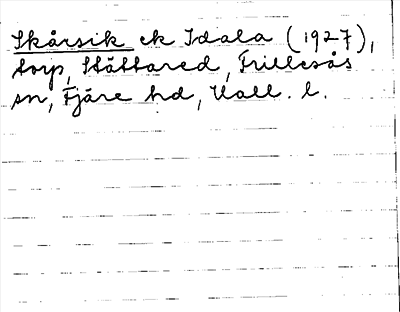 Skårsik ek Idala (1927),
torp, Stättared, Frillesås
sn, Fjäre hd, Hall. l.